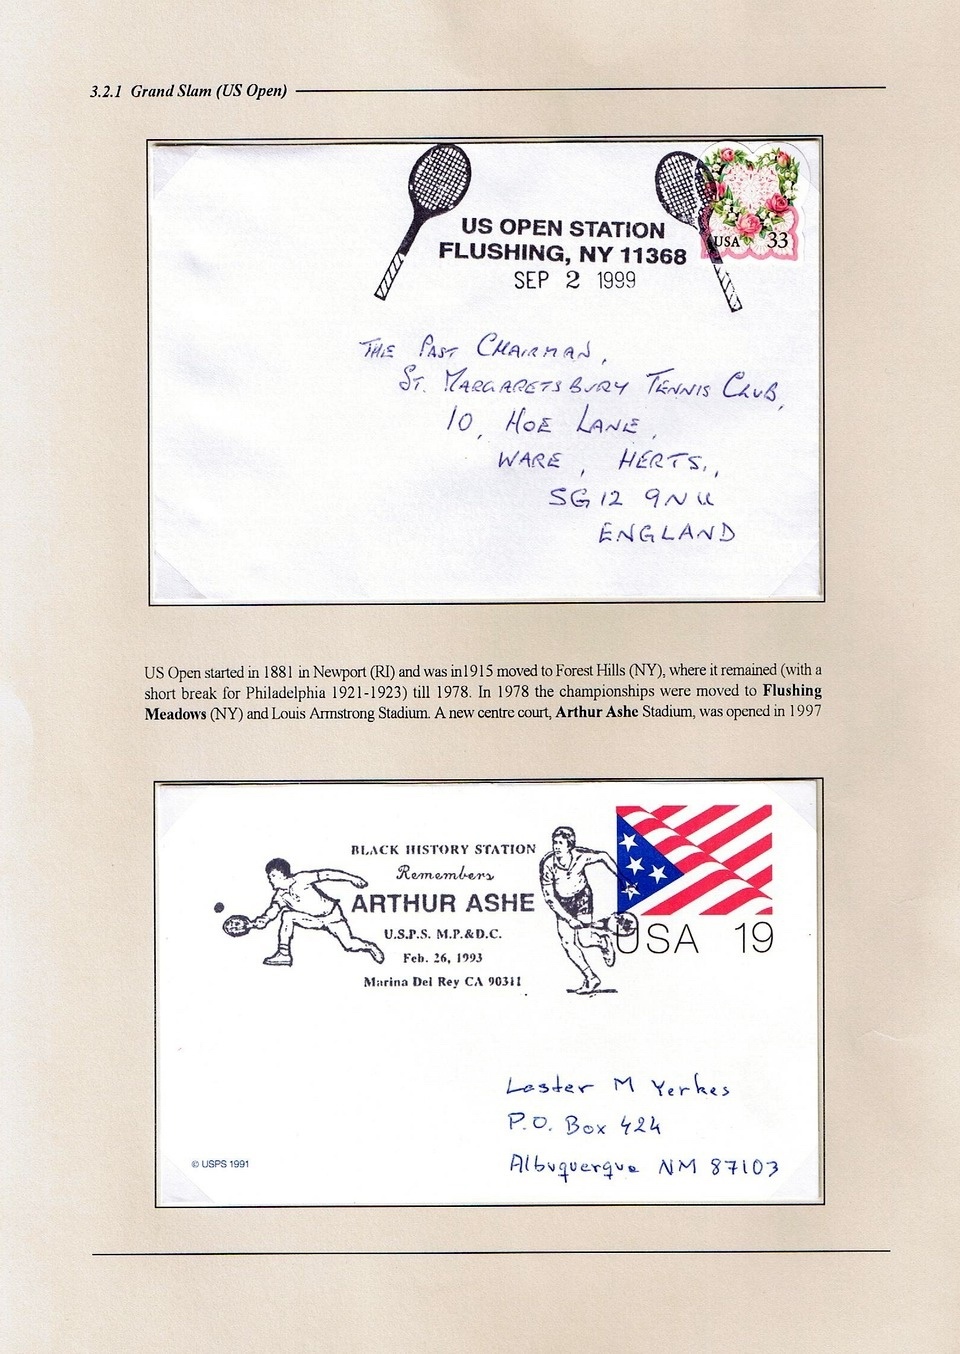 3.2.1 Grand Slam (US Open)
US OPEN STATION
FLUSHING, NY 11368
SEP 2 1999
USA 33
THE PAST CHAIRMAN,
ST. MARGARETSBURY TENNIS CLUB,
10, HOE LANE,
WARE, HERTS.,
SG12 9NU
ENGLAND
US Open started in 1881 in Newport (RI) and was in1915 moved to Forest Hills (NY), where it remained (with a
short break for Philadelphia 1921-1923) till 1978. In 1978 the championships were moved to Flushing
Meadows (NY) and Louis Armstrong Stadium. A new centre court, Arthur Ashe Stadium, was opened in 1997
BLACK HISTORY STATION
Remembers
ARTHUR ASHE
U.S.P.S. M.P.&D.C.
Feb. 26, 1993
Marina Del Rey CA 90311
USA 19
Lester M Yerkes
P.O. Box 424
Albuquerque NM 87103
© USPS 1991